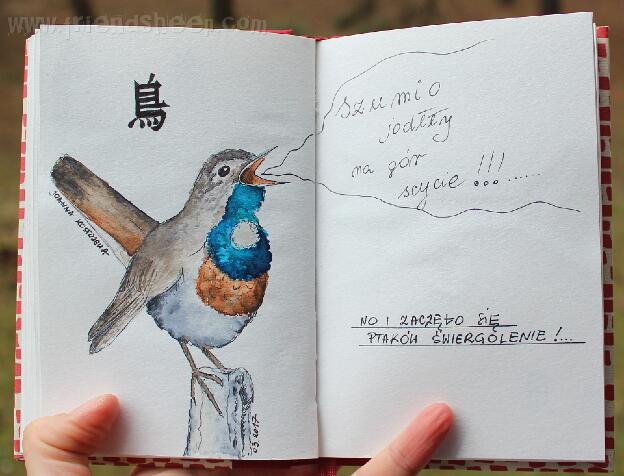 www.friendsheep.com
鳥
JOANNA KOSTRZEWA
03.2017
Szumio
jodłły
na gór
scycie !!!......
NO I ZACZĘŁO SIĘ
PTAKÓW ŚWIERGÓLENIE !...